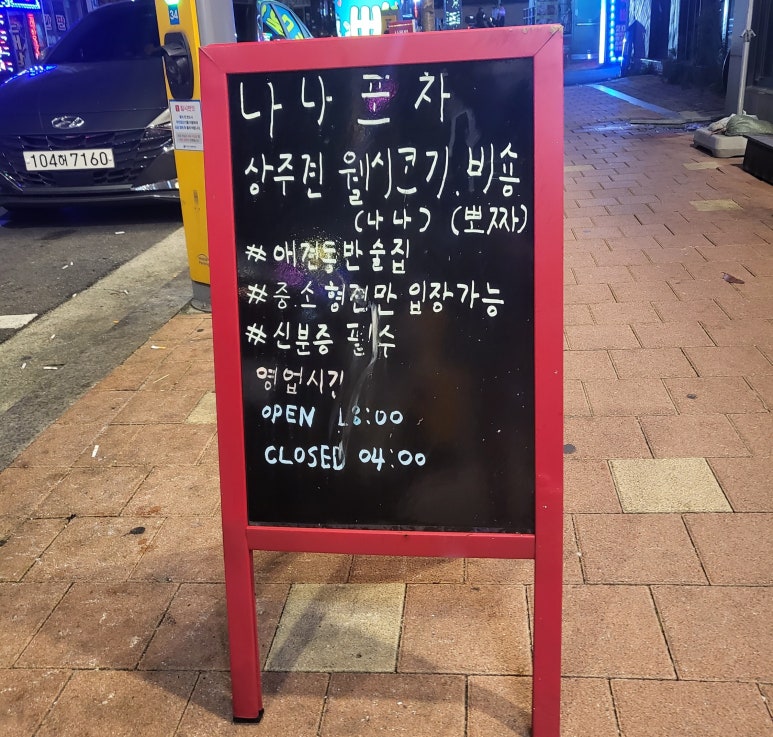 나나포차
상주견 웰시코기, 비숑
(나나) (뽀짜)
#애견동반술집
#중소형견만 입장가능
#신분증 필수
영업시간
OPEN 18:00
CLOSED 04:00
104허7160
34